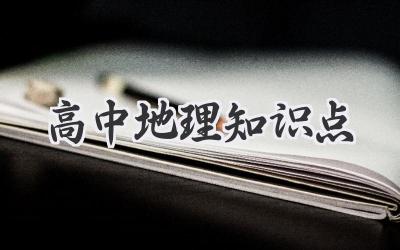 高中地理知识点